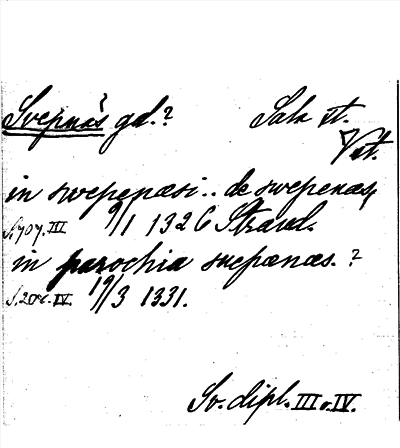 Svepnäs gd.? Sala st.
Vst.
in swepenæsi .. de swepenæs,
S. 707. III 9/1 1326 Strand.
in parochia suepænæs. ?
S. 208. IV. 19/3 1331.
Sv. dipl. III o. IV.